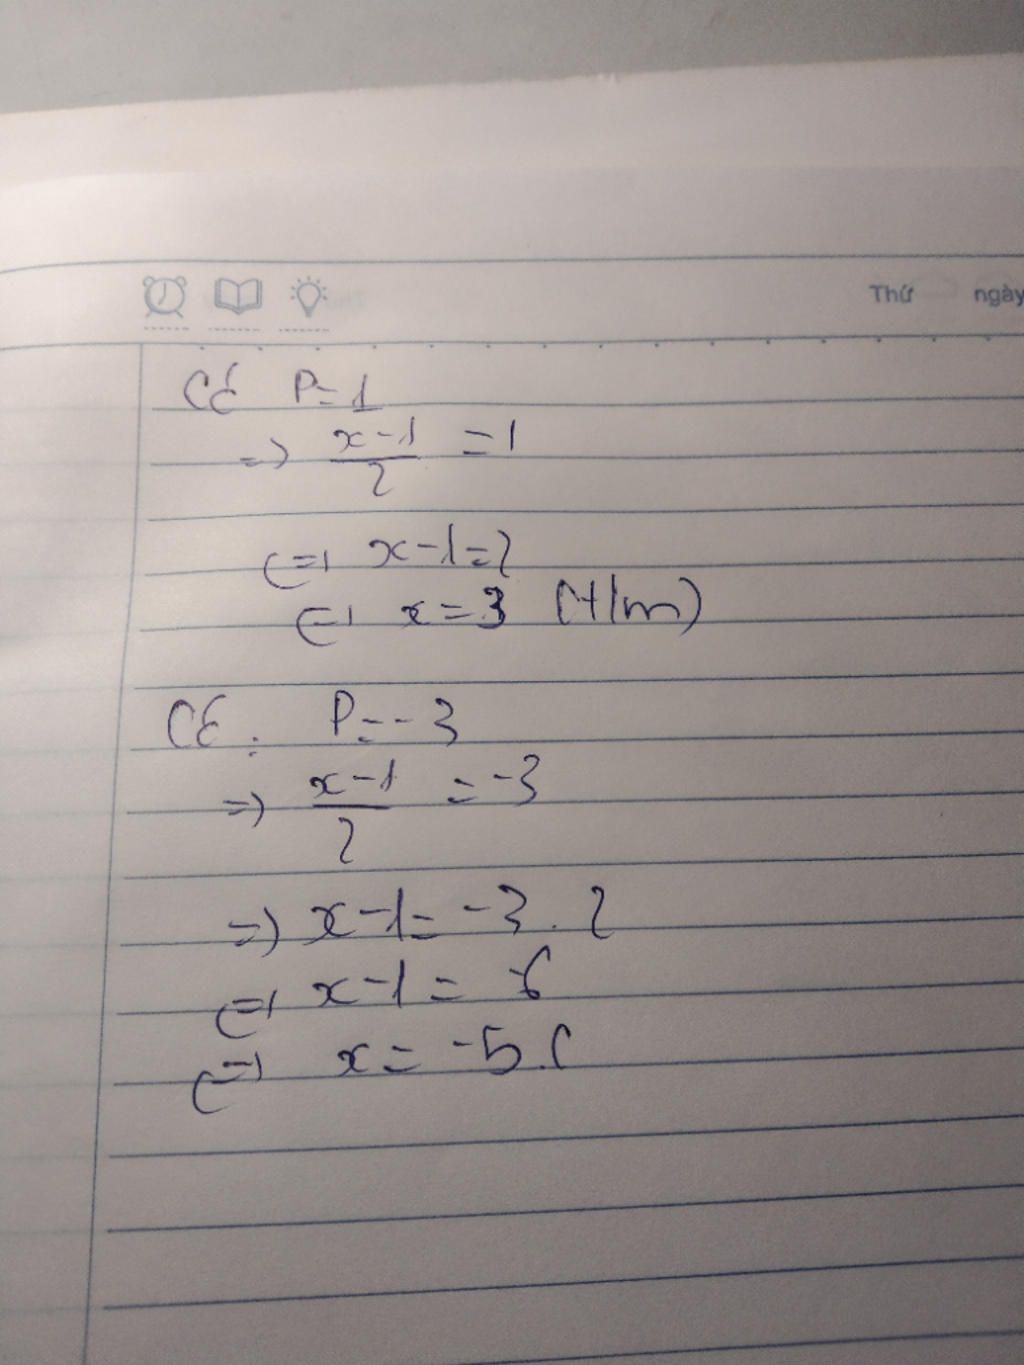 Thứ ngày
Để P=1
=> x-1/2 =1
<=> x-1=2
<=> x=3 (t/m)
Để : P=-3
=> x-1/2 =-3
=> x-1=-3.2
<=> x-1= -6
<=> x= -5.(